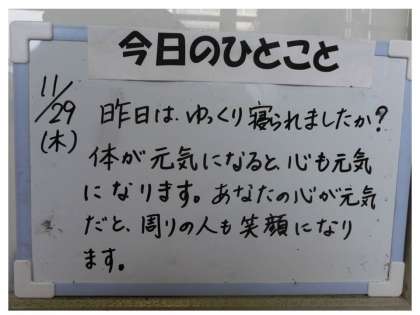 今日のひとこと
11/29
(木)
昨日は、ゆっくり寝られましたか?
体が元気になると、心も元気
になります。あなたの心が元気
だと、周りの人も笑顔になり
ます。